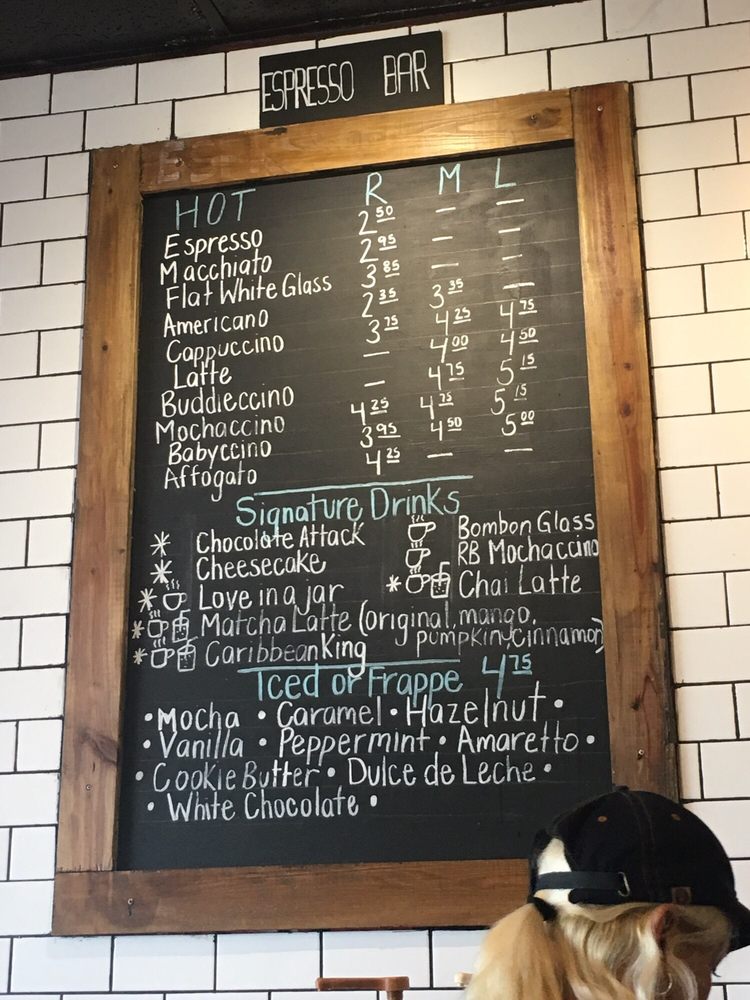 ESPRESSO BAR
HOT R M L
Espresso 2 50 — —
Macchiato 2 95 — —
Flat White Glass 3 85 — —
Americano 2 35 3 35 —
Cappuccino 3 75 4 25 4 75
Latte — 4 00 4 50
Buddieccino — 4 75 5 15
Mochaccino 4 25 4 75 5 15
Babyccino 3 95 4 50 5 00
Affogato 4 25 — —
Signature Drinks
* Chocolate Attack
* Cheesecake
* Love in a jar
* Matcha Latte (original, mango,
pumpkin, cinnamon)
* Caribbean King
Bombon Glass
RB Mochaccino
* Chai Latte
Iced or Frappe 4 75
• Mocha • Caramel • Hazelnut •
• Vanilla • Peppermint • Amaretto •
• Cookie Butter • Dulce de Leche •
• White Chocolate •